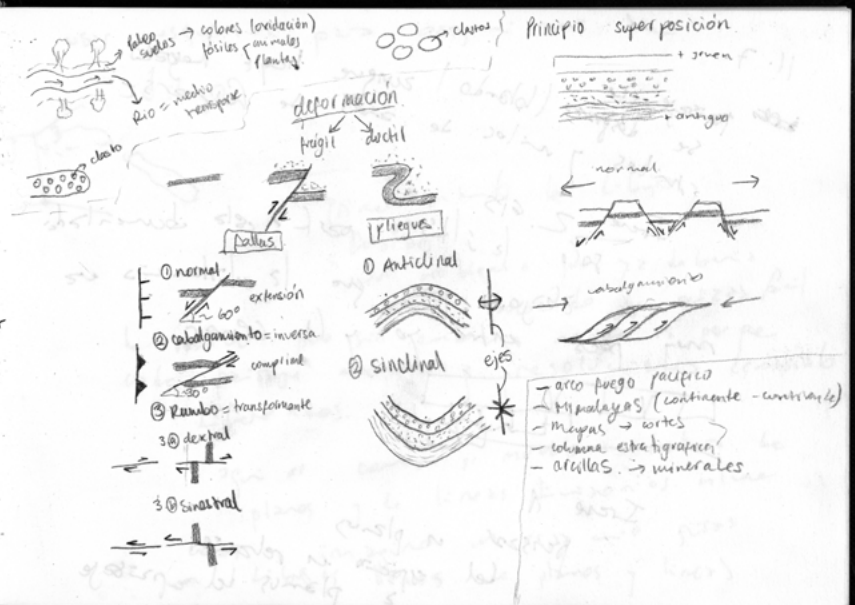 Paleo
suelos → colores (oxidación)
fósiles animales
plantas
Rio = medio
transporte
clastos
Principio superposición
+ joven
+ antiguo
clasto
deformación
frágil ductil
fallas
pliegues
normal
cabalgamiento
① normal
extensión
~ 60°
② cabalgamiento = inversa
compresi
~30°
③ Rumbo = transformante
3 ⓐ dextral
3 ⓑ sinastral
① Anticlinal
② sinclinal
ejes
- arco fuego pacifico
- Himalayas (continente - continente)
- mapas → cortes
- columna estratigrafica
- arcillas → minerales